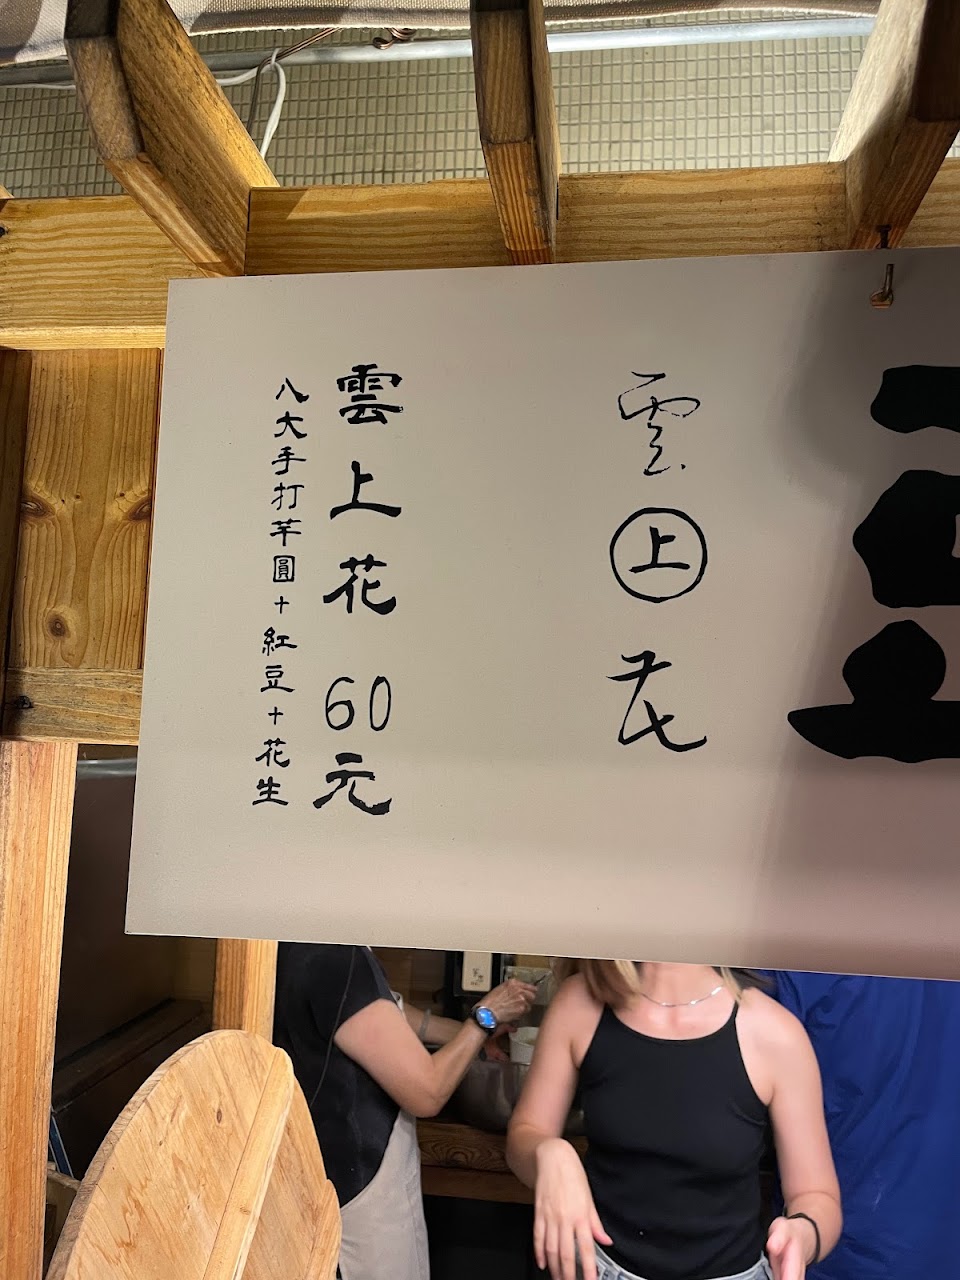 雲上花
雲上花 60元
八大手打芋圓+紅豆+花生